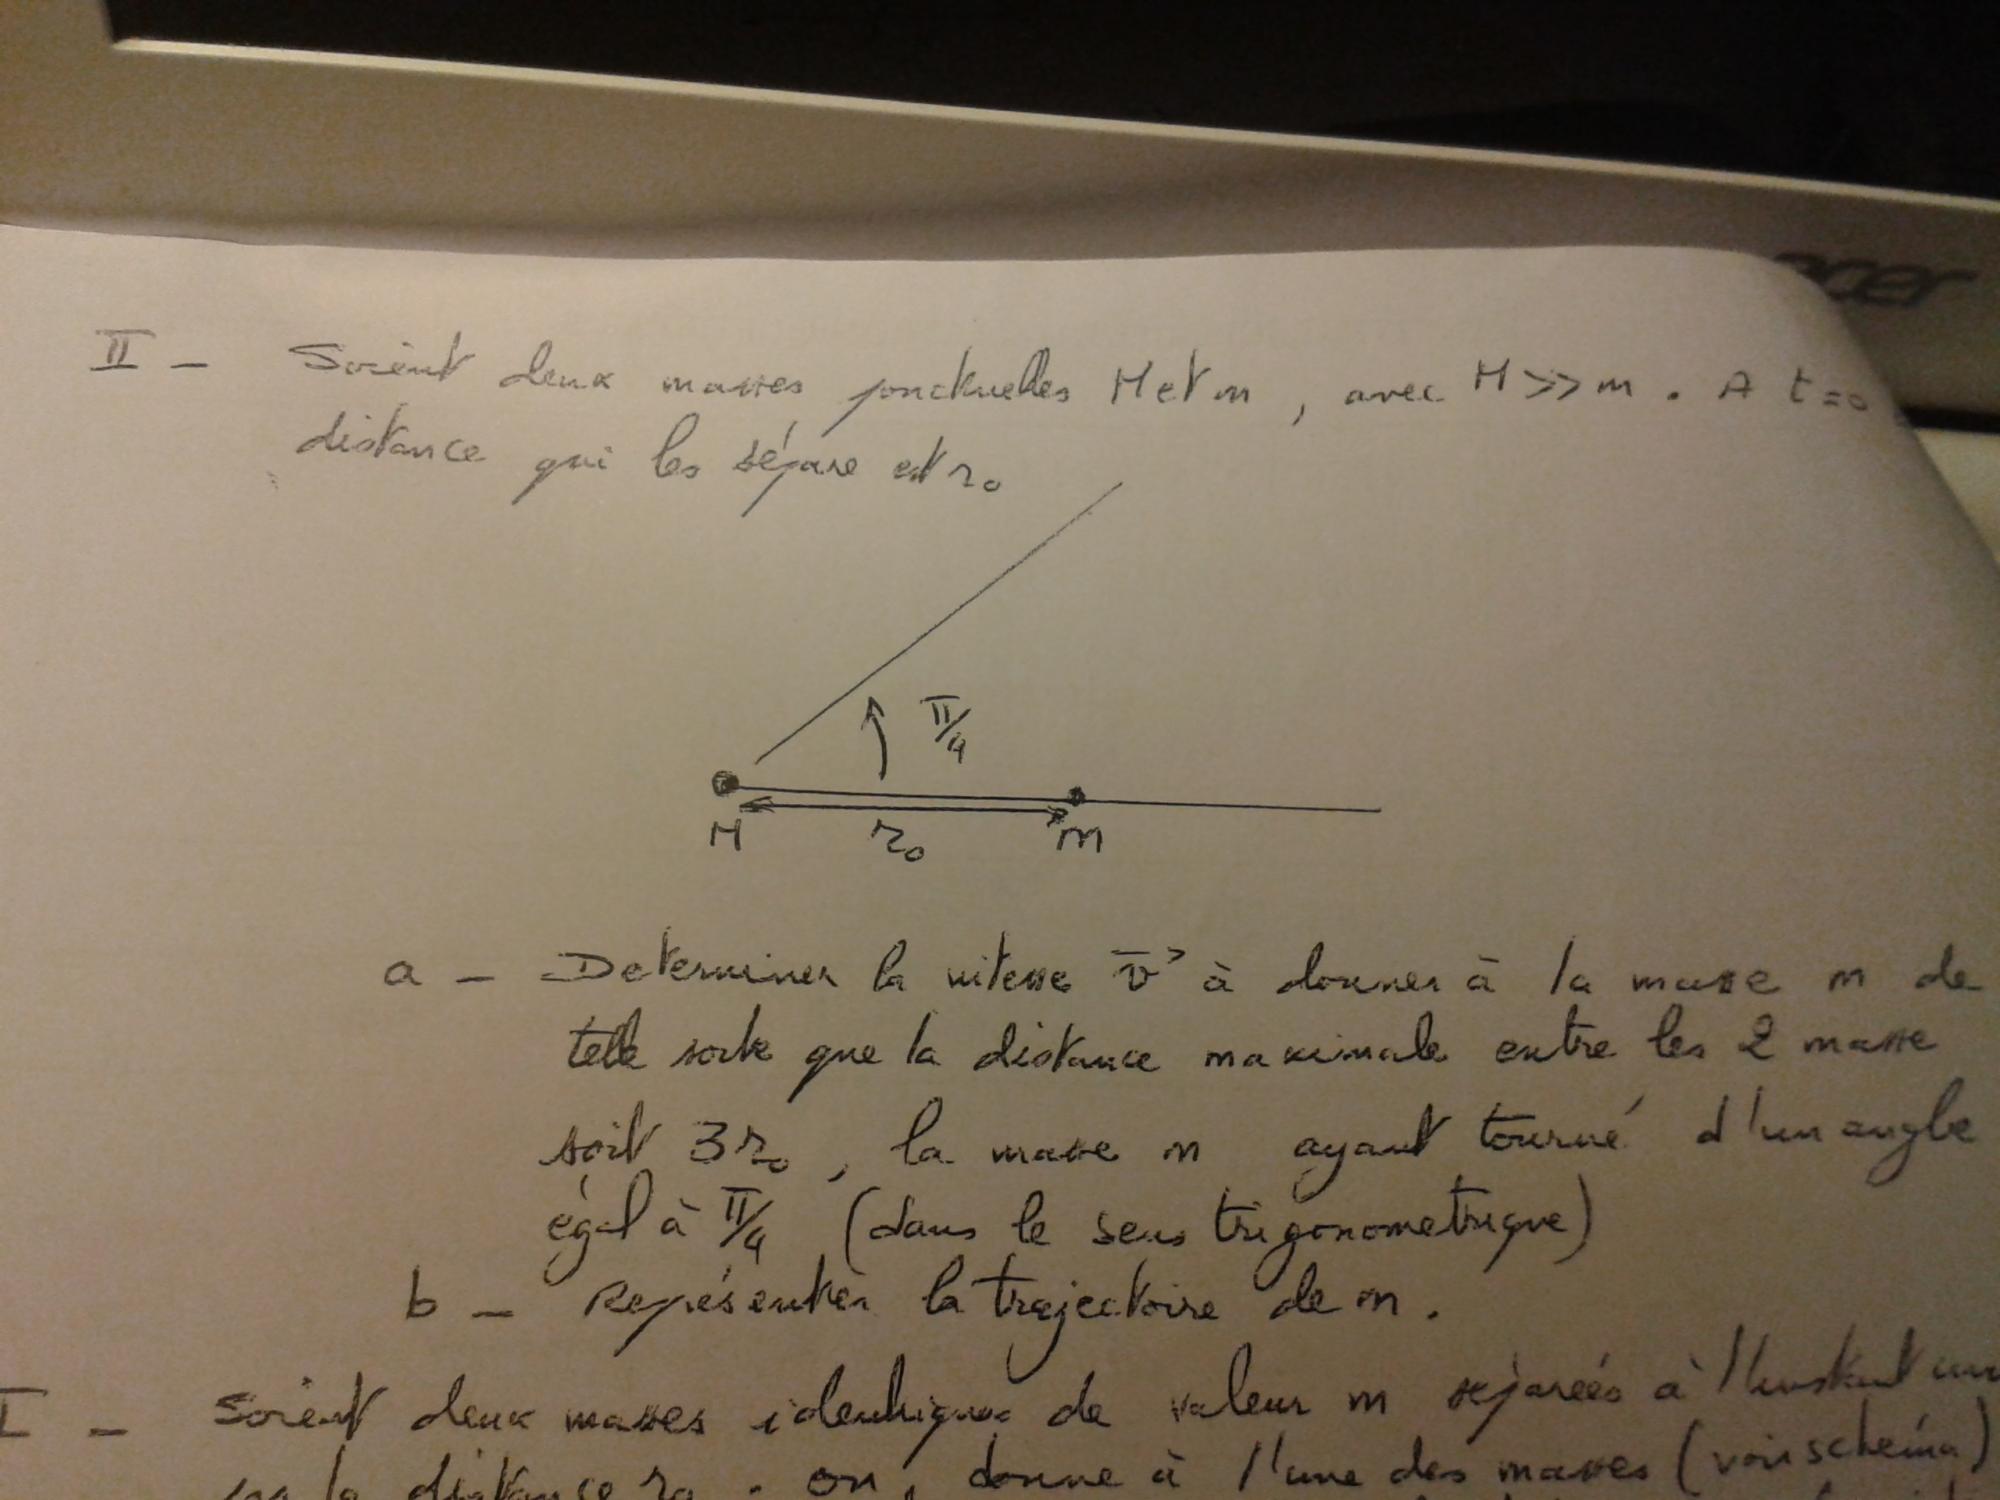 acer
II - Soient deux masses ponctuelles M et m, avec M >> m. A t=0
distance qui les sépare est r₀
π/4
M r₀ m
a - Determiner la vitesse v⃗ à donner à la masse m de
telle sorte que la distance maximale entre les 2 masse
soit 3r₀, la masse m ayant tourné d'un angle
égal à π/4 (dans le sens trigonometrique)
b - Représenter la trajectoire de m.
I - Soient deux masses identiques de valeur m séparées à l'instant
la distance r₀. on, donne à l'une des masses (voir schéma)